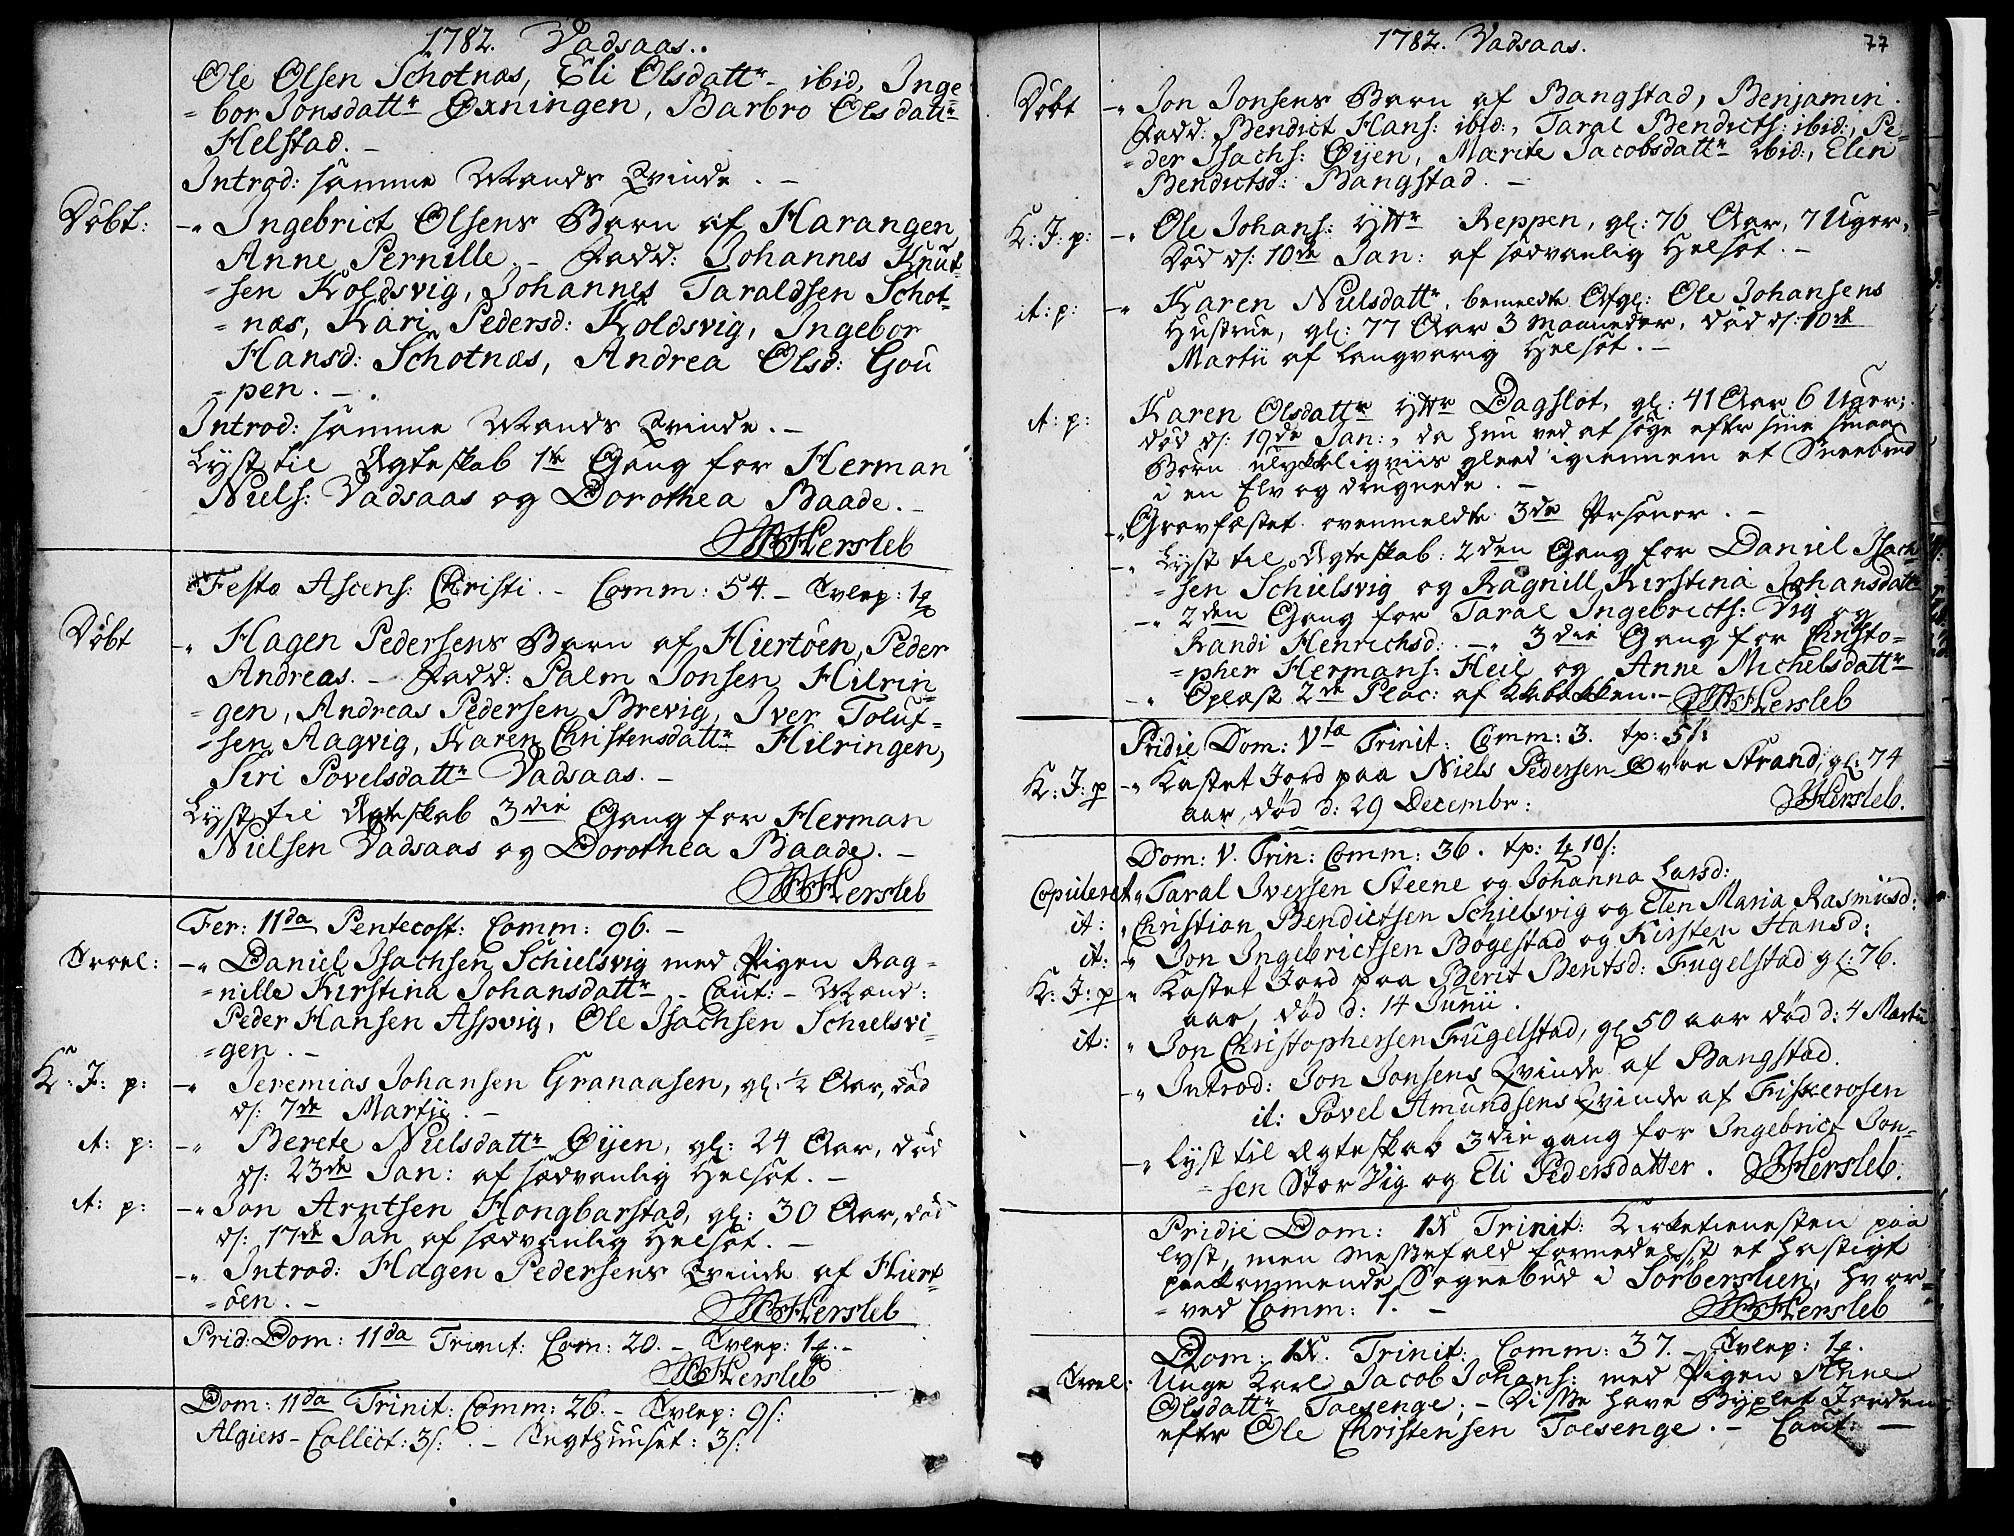 1782. Vadsaas.
Ole Olsen Schotnæs, Eli Olsdattr - ibid, Inge=
=bor Jonsdattr Øxningen, Barbro Olsdattr
Helstad. -
Introd: samme Mands Qvinde. -
Døbt: -" Ingebrict Olsens Barn af Harangen
Anne Pernille. - Fadd: Johannes Knut=
=sen Koldsvig, Johannes Taraldsen Schot=
=næs, Kari Pedersd: Koldsvig, Ingebor
Hansd: Schotnæs, Andrea Olsd: Gou
=pen. - .
Introd: samme Mands Qvinde. -
Lyst til Ægteskab 1te Gang for Herman
Niels: Vadsaas og Dorothea Baade. -
Hersleb
Festo Ascens: Christi. - Comm: 54. - Tvlep: 1
Døbt -" Hagen Pedersens Barn af Hiertøen, Peder
Andreas. - Fadd: Palm Jonsen Hilrin=
=gen, Andreas Pedersen Brevig, Iver Toluf=
=sen Aagvig, Karen Christensdattr Hilringen,
Siri Povelsdattr Vadsaas. -
Lyst til Ægteskab 3die Gang for Herman
Nielsen Vadsaas og Dorothea Baade. -
Hersleb
Fer: 11da Pentecost: Comm: 96. -
Trol: -" Daniel Isachsen Schielsvig med Pigen Rag=
=nille Kirstina Johansdattr - Caut: - Mænd:
Peder Hansen Aspvig, Ole Isachsen Schielsvi=
=gen. -
K: J: p: -" Jeremias Johansen Granaasen, gl: 1/2 Aar, død
d: 7de Martii. -
it: p: -" Berete Nielsdattr Øijen, gl: 24 Aar, død
d: 23de Jan: af sædvanlig Helsot. -
it: p: -" Jon Arntsen Hongbarstad, gl: 30 Aar, død
d: 17de Jan af sædvanlig Helsot. -
-" Introd: Hagen Pedersens Qvinde af Hiert=
=øen. -
Hersleb
Prid: Dom: 11da Trinit: Com: 20. - Tvlep: 1 . -
Hersleb
Dom: 11da Trinit: Comm: 26. - Tvlep: 9s:
Algiers - Collect: 3s: . - Tugthuuset: 3s:
1782. Vadsaas. 77
Døbt -" Jon Jonsens Barn af Bangstad, Benjamin.
Fadd: Bendict Hans: ibid:, Taral Bendicts: ibid:, Pe=
=der Isachs: Øijen, Marite Jacobsdattr ibid:, Elen
Bendictsd: Bangstad. -
K: J: p: -" Ole Johans: Yttr Reppen, gl: 76 Aar, 7 Uger,
Død d: 10de Jan: af sædvanlig Helsot. -
it: p: -" Karen Nielsdattr, bemeldte Afgl: Ole Johansens
Hustrue, gl: 77 Aar 3 Maaneder, død d: 10de
Martii af langvarig Helsot. -
it: p: Karen Olsdattr Yttr Dagslot, gl: 41 Aar 6 Uger,
død d: 19de Jan:, da hun ved at søge efter sine smaa
Børn ulykkeligviis gleed igiennem et Sneebrud
i en Elv og druknede. -
-" Gravfæstet ovenmeldte 3de Personer. -
-" Lyst til Ægteskab: 2den Gang for Daniel Isach=
=sen Schielsvig og Ragnill Kirstina Johansdattr
-" 2den Gang for Taral Ingebricts: Vig og
Randi Henrichsd: . -" 3die Gang for Christo=
=pher Hermans: Heil og Anne Michelsdattr
-" Oplæst 2de Plac: af . - Hersleb
Pridie Dom: Vta Trinit: Comm: 3. tp: 5s:
K: J: p -" Kastet Jord paa Niels Pedersen Øvre Strand, gl: 74
aar, død d: 29 Decembr: Hersleb.
Dom: V. Trin: Comm: 36. tp: 10s:
Copuleret " Taral Iversen Steene og Johanna Larsd:
it: " Christian Bendictsen Schielsvig og Elen Maria Rasmusd:
it: " Jon Ingebrictsen Bøgestad og Kirsten Hansd:
K: J: p " Kastet Jord paa Berit Bentsd: Fugelstad gl: 76.
aar, død d: 14 Junii.
it: " Jon Christophersen Fugelstad, gl 50 aar død d: 4 Martii
-" Introd: Jon Jonsens Qvinde af Bangstad.
it: Povel Amundsens Qvinde af Fiskerosen
-" Lyst til Ægteskab 3die gang for Ingebrict Jon=
=sen Stor Vig og Eli Pedersdatter. Hersleb.
Pridie Dom: 1X Trinit: Kirketienesten paa
lyst, men Messefald formedelst et hastigt
paakommende Sognebud i Sörberslien, hvor=
=ved Comm: 1. - Hersleb
Dom: 1X. Trinit: Comm: 37. - Tvlep: 1 .
Trol: Unge Karl Jacob Johans: med Pigen Anne
Olsdattr Toesenge. - Disse have Byxlet Jorden
efter Ole Christensen Toesenge. - Caut: -